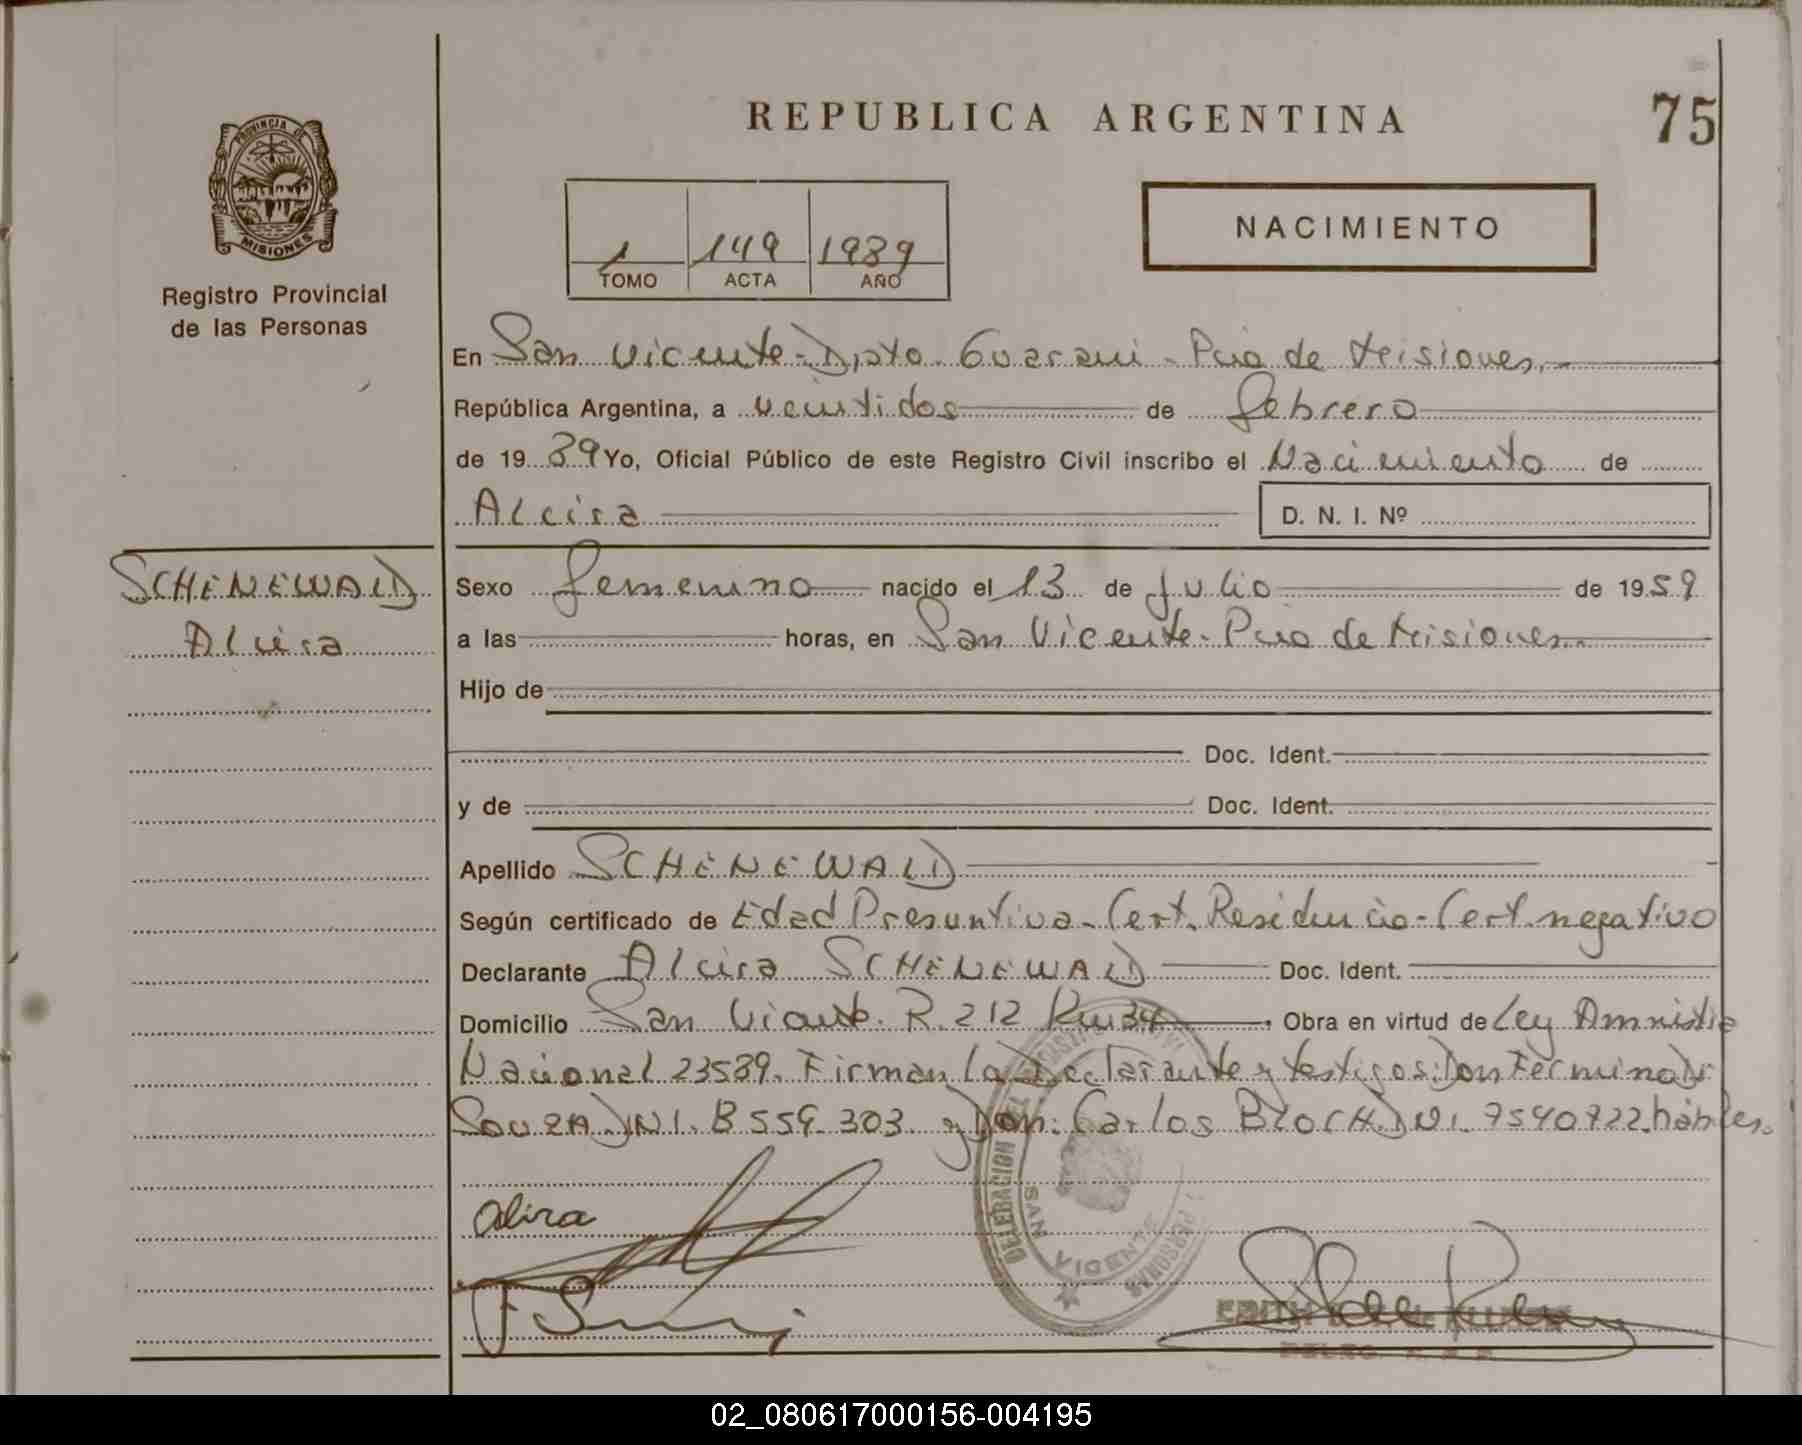 REPUBLICA ARGENTINA
75
PROVINCIA DE
MISIONES
Registro Provincial
de las Personas
NACIMIENTO
1 149 1989
TOMO ACTA AÑO
En San Vicente - Dpto Guarani - Pcia de Misiones.
República Argentina, a veintidos de febrero
de 19 89 Yo, Oficial Público de este Registro Civil inscribo el Nacimiento de
Alcira D. N. I. Nº
SCHENEWALD
Alcira
Sexo femenino nacido el 13 de Julio de 19 59
a las horas, en San Vicente - Pcia de Misiones.
Hijo de
Doc. Ident.
y de Doc. Ident.
Apellido SCHENEWALD
Según certificado de Edad Presuntiva - Cert. Residencia - Cert. negativo
Declarante Alcira SCHENEWALD Doc. Ident.
Domicilio San Vicente. R. 212 Km 34 Obra en virtud de Ley Amnistia
Nacional 23539. Firman La Declarante y testigos: Don Fermino Di
SOUZA DNI. 8 559 303 y Don: Carlos BLOCH DNI. 7540722. hábiles.
DELEGACION DEL REGISTRO PROVINCIAL PERSONAS
SAN VICENTE
Alira
F Souza
EDITH
02_080617000156-004195